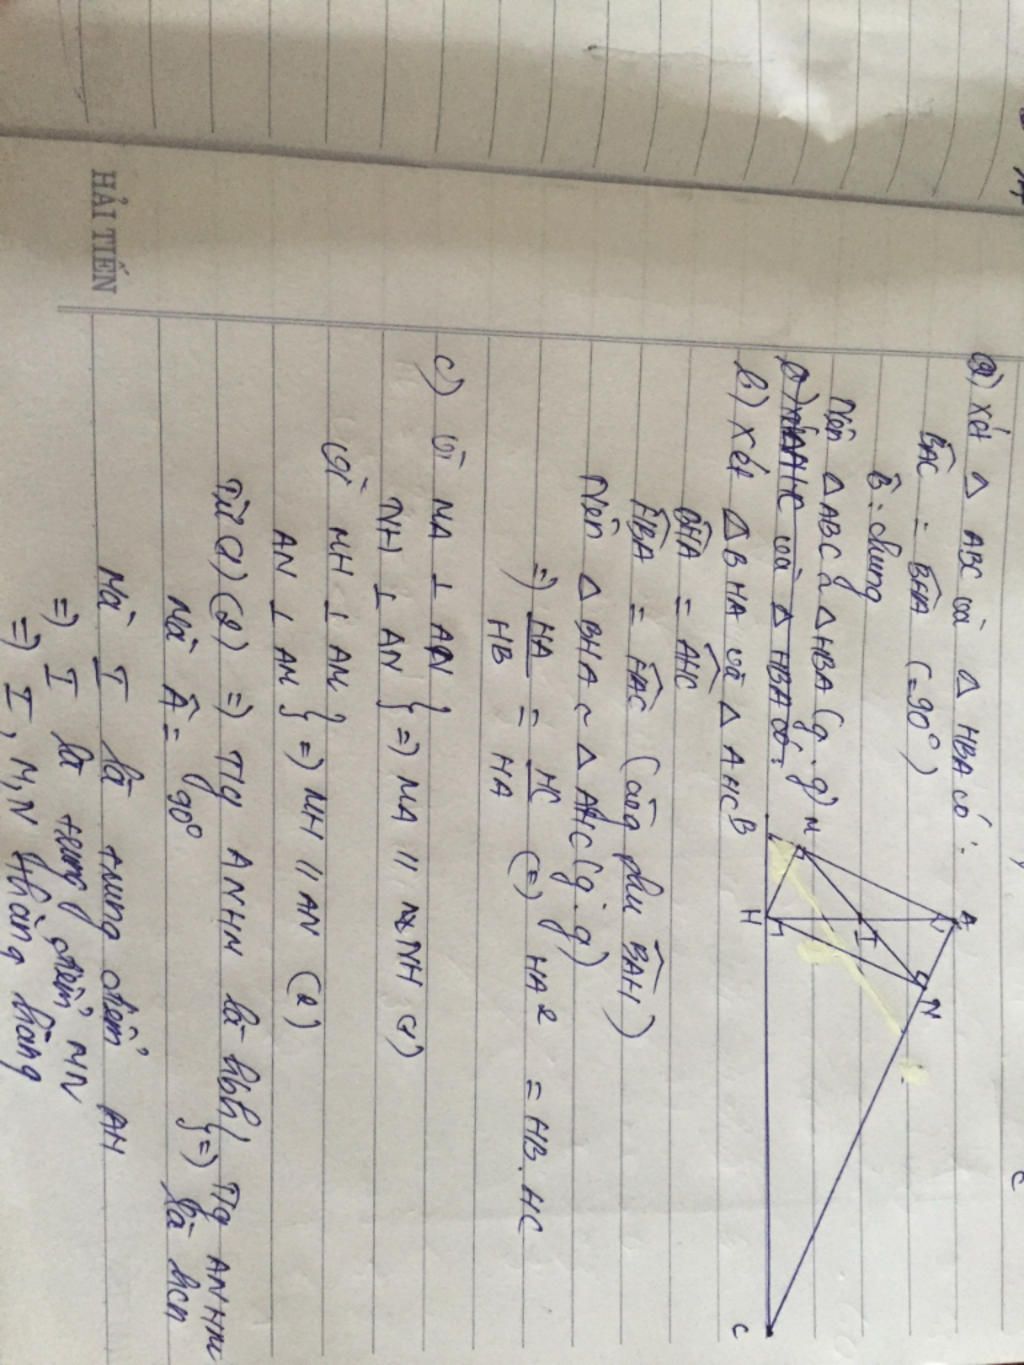 a) Xét Δ ABC và Δ HBA có:
BAC = BHA (=90°)
B: chung
Nên Δ ABC ~ Δ HBA (g.g)
b) Xét Δ BHA và Δ AHC
BHA = AHC
HBA = HAC (cùng phụ BAH)
Nên Δ BHA ~ Δ AHC (g.g)
=> HA/HB = HC/HA (=) HA2 = HB.HC
c) Vì MA ⊥ AN
NH ⊥ AN } => MA // NH (1)
Vì MH ⊥ AM
AN ⊥ AM } => MH // AN (2)
Từ (1) (2) => Tg ANHM là hbh
Mà A = 90° } => Tg ANHM là hcn
Mà I là trung điểm AH
=> I là trung điểm MN
=> I, M, N thẳng hàng
A
M
N
I
B
H
C
HẢI TIẾN